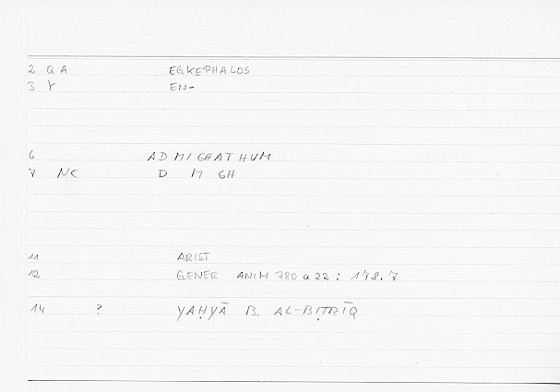 2 QA EGKEPHALOS
3 Y EN-
6 AD MIGHATHUM
7 NC D M GH
11 ARIST
12 GENER ANIM 780 a 22 : 178.7
14 ? YAḤYĀ B. AL-BIṬRĪQ